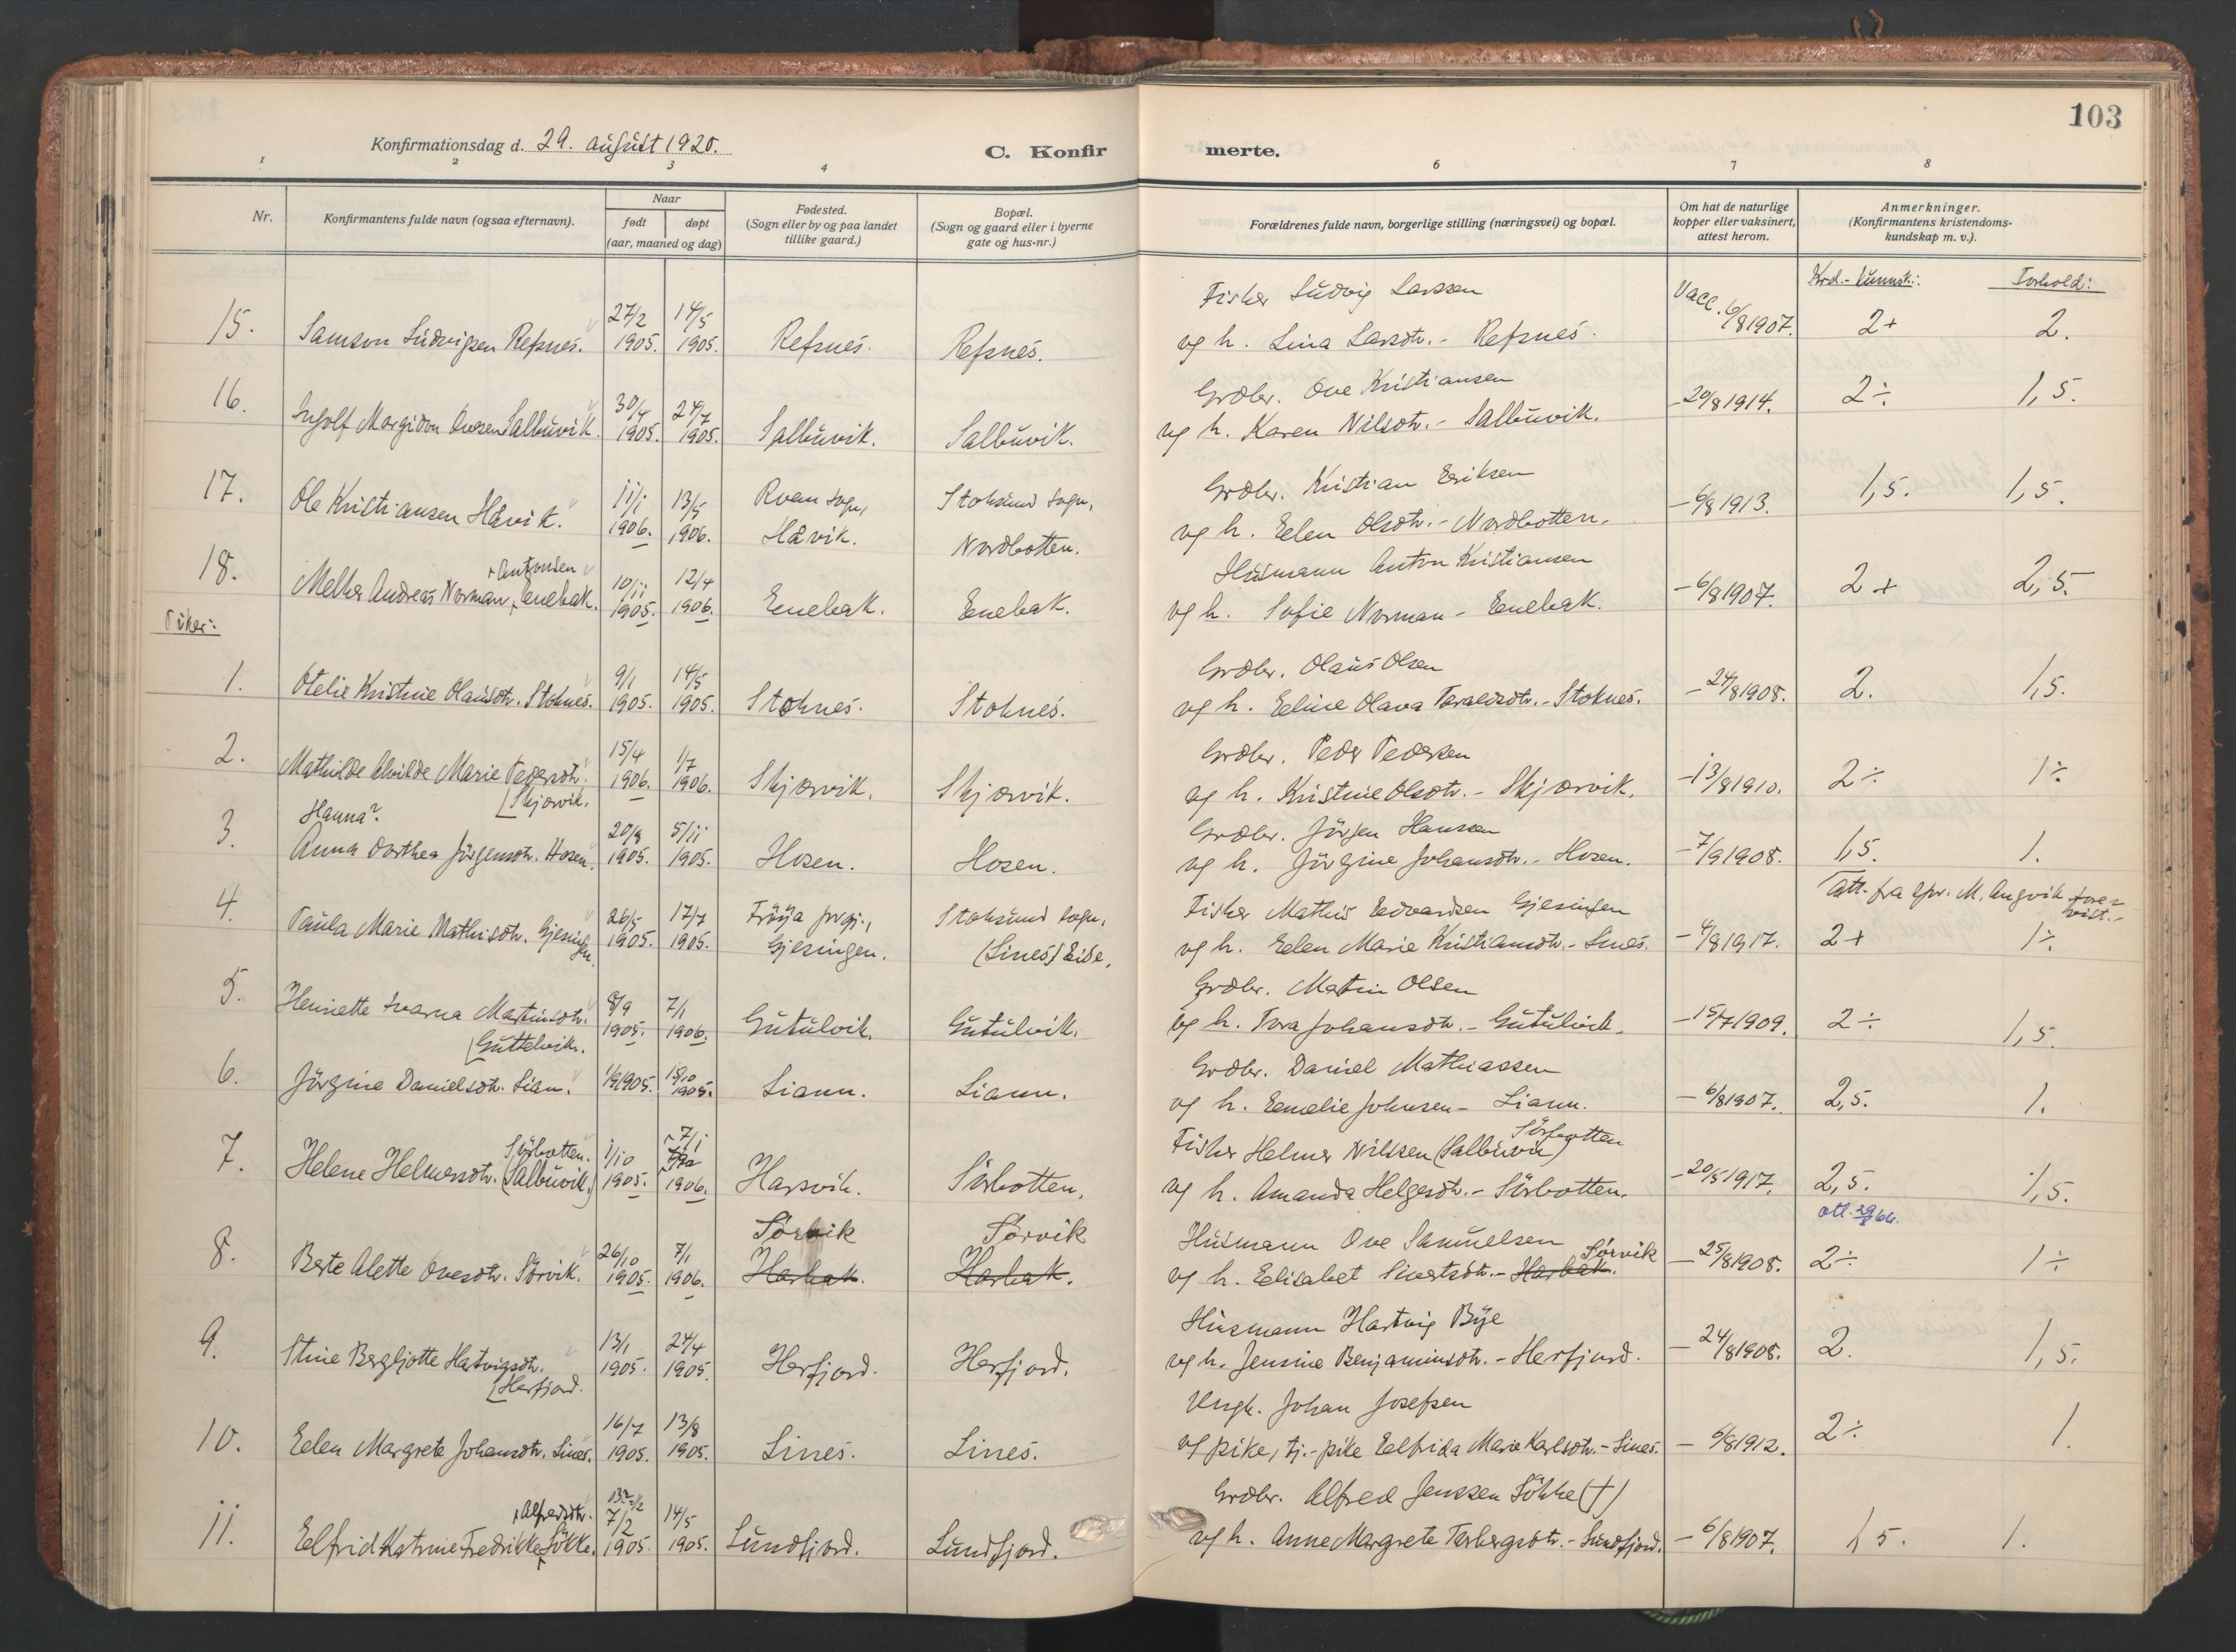 103
Konfirmationsdag d. 29. august 1920.
C. Konfirmerte.
1 2 3 4 6 7 8
Nr.
Konfirmantens fulde navn (ogsaa efternavn).
Naar
født
døpt
(aar, maaned og dag)
Fødested.
(Sogn eller by og paa landet
tillike gaard.)
Bopæl.
(Sogn og gaard eller i byerne
gate og hus-nr.)
Forældrenes fulde navn, borgerlige stilling (næringsvei) og bopæl.
Om hat de naturlige
kopper eller vaksinert,
attest herom.
Anmerkninger.
(Konfirmantens kristendoms-
kundskap m. v.).
Krd.-kunnsk.: Forhold:
15. Samson Ludvigsen Refsnes. 27/2 1905. 14/5 1905. Refsnes. Refsnes.
Fisker Ludvig Larssen
og h. Lina Larsdtr. - Refsnes. Vacc. 6/8 1907. 2+ 2.
16. Ingolf Margido Ovesen Salbuvik. 30/4 1905. 24/7 1905. Salbuvik. Salbuvik.
Grdbr. Ove Kristiansen
og h. Karen Nilsdtr. - Salbuvik. - 20/8 1914. 2÷ 1,5.
17. Ole Kristiansen Håvik. 11/1 1906. 13/5 1906. Roan sogn, Håvik. Stoksund sogn, Nordbotten.
Grdbr. Kristian Eriksen
og h. Eelen Olsdtr. - Nordbotten. - 6/8 1913. 1,5. 1,5.
18. Melker Andreas Norman Antonsen Eenebak. 10/11 1905. 12/4 1906. Eenebak. Eenebak.
Husmann Anton Kristiansen
og h. Sofie Norman - Eenebak. - 6/8 1907. 2+ 2,5.
Piker:
1. Otelie Kristine Olausdtr. Stoknes. 9/1 1905. 14/5 1905. Stoknes. Stoknes.
Grdbr. Olaus Olsen
og h. Eeline Olava Taraldsdtr. - Stoknes. - 24/8 1908. 2. 1,5.
2. Mathilde Alvilde Marie Pedersdtr. Skjærvik. 15/4 1906. 1/7 1906. Skjærvik. Skjærvik.
Grdbr. Peder Pedersen
og h. Kristine Olsdtr. - Skjærvik. - 13/8 1910. 2÷ 1÷
Hanna?
3. Anna Dorthea Jörgensdtr. Hosen. 20/8 1905. 5/11 1905. Hosen. Hosen.
Grdbr. Jörgen Hansen
og h. Jörgine Johansdtr. - Hosen. - 7/9 1908. 1,5. 1.
4. Paula Marie Mathisdtr. Gjesingen. 26/5 1905. 17/7 1905. Fröya prgj., Gjesingen. Stoksund sogn, (Lines) Eide.
Fisker Mathis Eedvardsen Gjesingen
og h. Eelen Marie Kristiansdtr. - Lines. - 4/8 1917. 2+ 1÷
Att. fra spr. M. Angvik forevist.-
5. Henriette Ivarna Martinsdtr. Guttelvik. 8/9 1905. 7/1 1906. Gutulvik. Gutulvik.
Grdbr. Martin Olsen
og h. Tora Johansdtr. - Gutulvik. - 15/7 1909. 2÷ 1,5.
6. Jörgine Danielsdtr. Lian. 1/9 1905. 15/10 1905. Liann. Liann.
Grdbr. Daniel Mathiassen
og h. Eemelie Johnsen - Liann. - 6/8 1907. 2,5. 1.
7. Helene Helmersdtr. Sörbotten. (Salbuvik.) 1/10 1905. 7/1 1906. Harsvik. Sörbotten.
Fisker Helmer Nilssen (Salbuvik) Sörbotten
og h. Amanda Helgesdtr. - Sörbotten. - 20/5 1917. 2,5. 1,5.
att. 29/8 66.
8. Berte Alette Ovesdtr. Sörvik. 26/10 1905. 7/1 1906. Sørvik Harbak. Sørvik Harbak.
Husmann Ove Samuelsen
og h. Eelisabet Sivertsdtr. - Harbak. Sørvik - 25/8 1908. 2÷ 1÷
9. Stine Bergljotte Hartvigsdtr. Herfjord. 13/1 1905. 24/4 1905. Herfjord. Herfjord.
Husmann Hartvig Bye
og h. Jensine Benjaminsdtr. - Herfjord. - 24/8 1908. 2. 1,5.
10. Eelen Margrete Johansdtr. Lines. 16/7 1905. 13/8 1905. Lines. Lines.
Ungk. Johan Josefsen
og pike, tj.-pike Eelfrida Marie Karlsdtr. - Lines. - 6/8 1912. 2÷ 1.
11. Eelfrid Katrine Fredrikke Alfredsdtr. Sökke. 13?-1/2 7/2 1905. 14/5 1905. Sundfjord. Sundfjord.
Grdbr. Alfred Jenssen Sökke (†)
og h. Anne Margrete Torbergsdtr. - Sundfjord. - 6/8 1907. 1,5. 1.